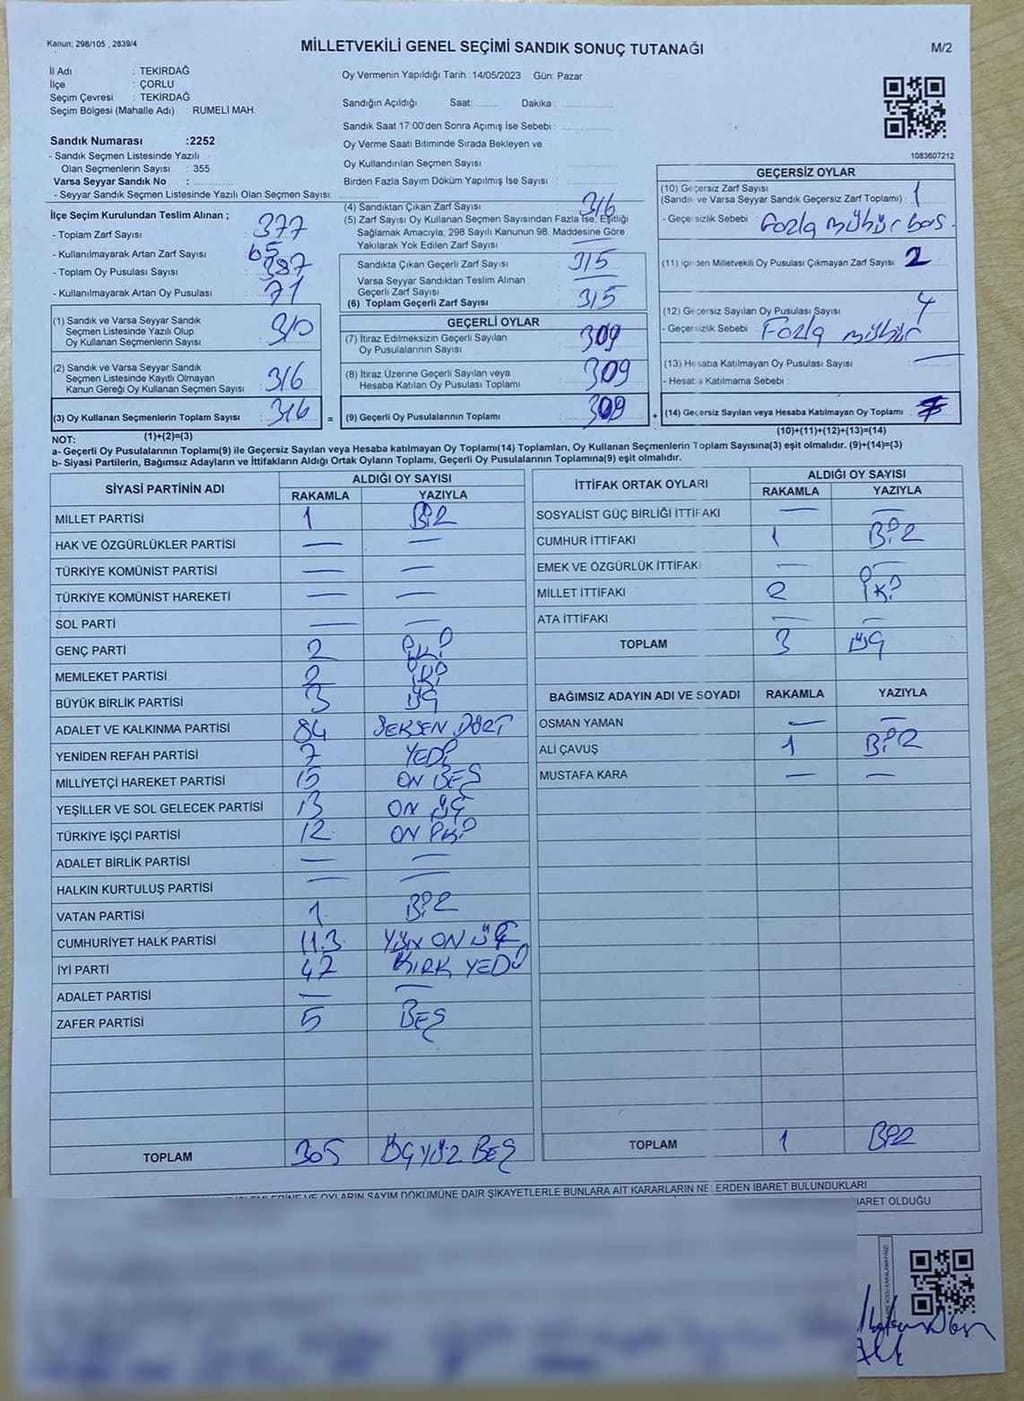 Kanun; 298/105 , 2839/4
MİLLETVEKİLİ GENEL SEÇİMİ SANDIK SONUÇ TUTANAĞI
M/2
İl Adı : TEKİRDAĞ
İlçe : ÇORLU
Seçim Çevresi : TEKİRDAĞ
Seçim Bölgesi (Mahalle Adı) : RUMELİ MAH.
Sandık Numarası :2252
- Sandık Seçmen Listesinde Yazılı
Olan Seçmenlerin Sayısı : 355
Varsa Seyyar Sandık No :
- Seyyar Sandık Seçmen Listesinde Yazılı Olan Seçmen Sayısı
Oy Vermenin Yapıldığı Tarih : 14/05/2023 Gün: Pazar
Sandığın Açıldığı Saat: Dakika :
Sandık Saat 17:00'den Sonra Açımış İse Sebebi :
Oy Verme Saati Bitiminde Sırada Bekleyen ve
Oy Kullandırılan Seçmen Sayısı
Birden Fazla Sayım Döküm Yapılmış İse Sayısı :
1083607212
İlçe Seçim Kurulundan Teslim Alınan ;
- Toplam Zarf Sayısı : 377
- Kullanılmayarak Artan Zarf Sayısı : 65
- Toplam Oy Pusulası Sayısı : 387
- Kullanılmayarak Artan Oy Pusulası : 71
(1) Sandık ve Varsa Seyyar Sandık
Seçmen Listesinde Yazılı Olup
Oy Kullanan Seçmenlerin Sayısı : 310
(2) Sandık ve Varsa Seyyar Sandık
Seçmen Listesinde Kayıtlı Olmayan
Kanun Gereği Oy Kullanan Seçmen Sayısı : 316
(3) Oy Kullanan Seçmenlerin Toplam Sayısı : 316 =
(1)+(2)=(3)
(4) Sandıktan Çıkan Zarf Sayısı : 316
(5) Zarf Sayısı Oy Kullanan Seçmen Sayısından Fazla İse, Eşitliği
Sağlamak Amacıyla, 298 Sayılı Kanunun 98. Maddesine Göre
Yakılarak Yok Edilen Zarf Sayısı :
Sandıkta Çıkan Geçerli Zarf Sayısı : 315
Varsa Seyyar Sandıktan Teslim Alınan
Geçerli Zarf Sayısı
(6) Toplam Geçerli Zarf Sayısı : 315
GEÇERLİ OYLAR
(7) İtiraz Edilmeksizin Geçerli Sayılan
Oy Pusulalarının Sayısı : 309
(8) İtiraz Üzerine Geçerli Sayılan veya
Hesaba Katılan Oy Pusulası Toplamı : 309
(9) Geçerli Oy Pusulalarının Toplamı : 309 +
GEÇERSİZ OYLAR
(10) Geçersiz Zarf Sayısı
(Sandık ve Varsa Seyyar Sandık Geçersiz Zarf Toplamı) : 1
- Geçersizlik Sebebi : Fazla mühür bas.
(11) İçinden Milletvekili Oy Pusulası Çıkmayan Zarf Sayısı : 2
(12) Geçersiz Sayılan Oy Pusulası Sayısı : 4
- Geçersizlik Sebebi : Fazla mühür
(13) Hesaba Katılmayan Oy Pusulası Sayısı : —
- Hesaba Katılmama Sebebi :
(14) Geçersiz Sayılan veya Hesaba Katılmayan Oy Toplamı : 7
(10)+(11)+(12)+(13)=(14)
NOT:
a- Geçerli Oy Pusulalarının Toplamı(9) ile Geçersiz Sayılan veya Hesaba katılmayan Oy Toplamı(14) Toplamları, Oy Kullanan Seçmenlerin Toplam Sayısına(3) eşit olmalıdır. (9)+(14)=(3)
b- Siyasi Partilerin, Bağımsız Adayların ve İttifakların Aldığı Ortak Oyların Toplamı, Geçerli Oy Pusulalarının Toplamına(9) eşit olmalıdır.
SİYASİ PARTİNİN ADI ALDIĞI OY SAYISI
RAKAMLA YAZIYLA
MİLLET PARTİSİ 1 BİR
HAK VE ÖZGÜRLÜKLER PARTİSİ — —
TÜRKİYE KOMÜNİST PARTİSİ — —
TÜRKİYE KOMÜNİST HAREKETİ — —
SOL PARTİ — —
GENÇ PARTİ 2 İKİ
MEMLEKET PARTİSİ 2 İKİ
BÜYÜK BİRLİK PARTİSİ 3 ÜÇ
ADALET VE KALKINMA PARTİSİ 84 SEKSEN DÖRT
YENİDEN REFAH PARTİSİ 7 YEDİ
MİLLİYETÇİ HAREKET PARTİSİ 15 ON BEŞ
YEŞİLLER VE SOL GELECEK PARTİSİ 13 ON ÜÇ
TÜRKİYE İŞÇİ PARTİSİ 12 ON İKİ
ADALET BİRLİK PARTİSİ — —
HALKIN KURTULUŞ PARTİSİ — —
VATAN PARTİSİ 1 BİR
CUMHURİYET HALK PARTİSİ 113 YÜZ ON ÜÇ
İYİ PARTİ 47 KIRK YEDİ
ADALET PARTİSİ — —
ZAFER PARTİSİ 5 BEŞ
TOPLAM 305 ÜÇYÜZ BEŞ
İTTİFAK ORTAK OYLARI ALDIĞI OY SAYISI
RAKAMLA YAZIYLA
SOSYALİST GÜÇ BİRLİĞİ İTTİFAKI — —
CUMHUR İTTİFAKI 1 BİR
EMEK VE ÖZGÜRLÜK İTTİFAKI — —
MİLLET İTTİFAKI 2 İKİ
ATA İTTİFAKI — —
TOPLAM 3 ÜÇ
BAĞIMSIZ ADAYIN ADI VE SOYADI RAKAMLA YAZIYLA
OSMAN YAMAN — —
ALİ ÇAVUŞ 1 BİR
MUSTAFA KARA — —
TOPLAM 1 BİR
VE OYLARIN SAYIM DÖKÜMÜNE DAİR ŞİKAYETLERLE BUNLARA AİT KARARLARIN NELERDEN İBARET BULUNDUKLARI
İBARET OLDUĞU